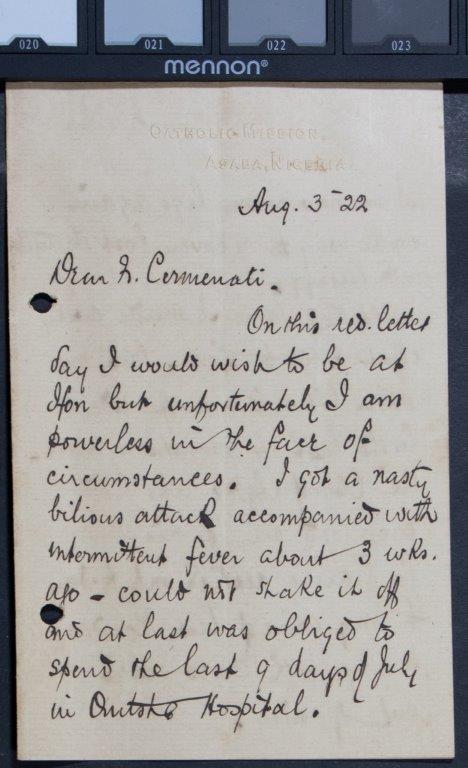 020 021 022 023
mennon®
CATHOLIC MISSION,
ASABA, NIGERIA
Aug. 3 - 22
Dear Fr. Cermenati.
On this red. letter
day I would wish to be at
Ifon but unfortunately I am
powerless in the face of
circumstances. I got a nasty
bilious attack accompanied with
intermittent fever about 3 wks.
ago - could not shake it off
and at last was obliged to
spend the last 9 days of July
in Onitsha Hospital.